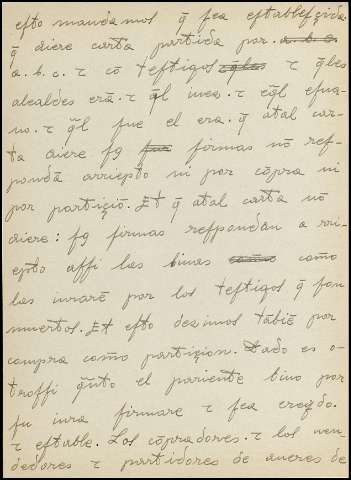 esto mandamos q̄ sea establesçida.
q̄ diere carta partida por. a.b.c.
a.b.c. τ cō testigos τ q̄les
alcaldes erā. τ q̄l iuea. τ
no. τ q̄l fue el era. q̄ atal car-
ta diere sg firmas nō res-
pondā arriepto ni por cōpra ni
por partiçiō. Et q̄ atal carta nō
diere: sg firmas respondan a rri-
epto assi las biuas como
las iurarē por los testigos q̄ son
muertos. Et esto dezimos tābiē por
compra como partiçion. Dado es o-
trossi q̄nto el pariente biuo por
su iura firmare τ sea creydo.
τ estable. Los cōpradores. τ los uen-
dedores τ partidores de aueres de